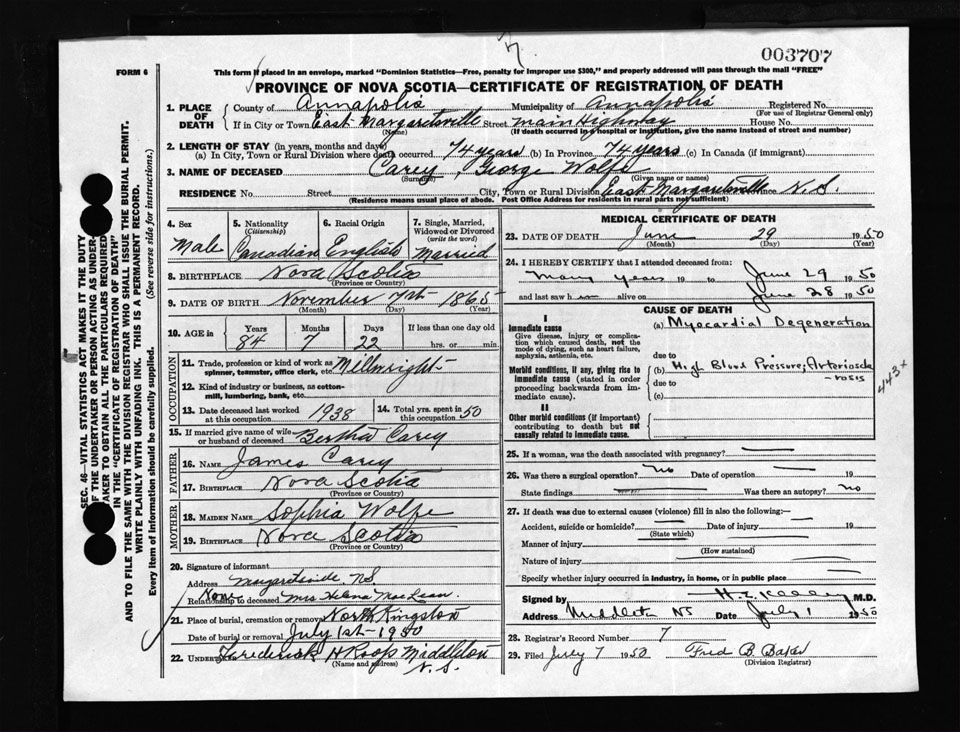 003707
FORM 6
This form if placed in an envelope, marked "Dominion Statistics—Free, penalty for improper use $300," and properly addressed will pass through the mail "FREE"
PROVINCE OF NOVA SCOTIA—CERTIFICATE OF REGISTRATION OF DEATH
1. PLACE OF DEATH { County of Annapolis Municipality of Annapolis Registered No.
(For use of Registrar General only)
If in City or Town East Margaretsville Street Main Highway House No.
(Name) (If death occurred in hospital or institution, give the name instead of street and number)
2. LENGTH OF STAY (in years, months and days)
(a) In City, Town or Rural Division where death occurred 74 years (b) In Province 74 years (c) In Canada (if immigrant)
3. NAME OF DECEASED Carey, George Wolfe
(Surname) (Given name or names)
RESIDENCE No. Street City, Town or Rural Division East Margaretsville Province N.S.
(Residence means usual place of abode. Post Office Address for residents in rural parts not sufficient)
SEC. 46—VITAL STATISTICS ACT MAKES IT THE DUTY
OF THE UNDERTAKER OR PERSON ACTING AS UNDER-
TAKER TO OBTAIN ALL THE PARTICULARS REQUIRED
IN THE "CERTIFICATE OF REGISTRATION OF DEATH"
AND TO FILE THE SAME WITH THE DIVISION REGISTRAR WHO SHALL ISSUE THE BURIAL PERMIT.
WRITE PLAINLY WITH UNFADING INK. THIS IS A PERMANENT RECORD.
Every item of information should be carefully supplied. (See reverse side for instructions.)
4. Sex
Male
5. Nationality
(Citizenship)
Canadian
6. Racial Origin
English
7. Single, Married,
Widowed or Divorced
(write the word)
Married
8. BIRTHPLACE Nova Scotia
(Province or Country)
9. DATE OF BIRTH November 7th 1865
(Month) (Day) (Year)
10. AGE in Years Months Days If less than one day old
84 7 22 hrs. or min.
OCCUPATION
11. Trade, profession or kind of work as
spinner, teamster, office clerk, etc. Millwright
12. Kind of industry or business, as cotton-
mill, lumbering, bank, etc.
13. Date deceased last worked
at this occupation 1938
14. Total yrs. spent in
this occupation 50
15. If married give name of wife
or husband of deceased Bertha Carey
FATHER
16. NAME James Carey
17. BIRTHPLACE Nova Scotia
(Province or Country)
MOTHER
18. MAIDEN NAME Sophia Wolfe
19. BIRTHPLACE Nova Scotia
(Province or Country)
20. Signature of informant
Address Margaretsville N.S.
None
Relationship to deceased Mrs Helena MacLean
21. Place of burial, cremation or removal North Kingston
Date of burial or removal July 1st - 1950
22. Undertaker Frederick H Roop Middleton
(Name and address) N.S.
MEDICAL CERTIFICATE OF DEATH
23. DATE OF DEATH June 29 1950
(Month) (Day) (Year)
24. I HEREBY CERTIFY that I attended deceased from:
many years 19 to June 29 1950
and last saw him alive on June 28 1950
CAUSE OF DEATH
I
Immediate cause
Give disease, injury or complica-
tion which caused death, not the
mode of dying, such as heart failure,
asphyxia, asthenia, etc.
(a) Myocardial Degeneration
due to
Morbid conditions, if any, giving rise to
immediate cause (stated in order
proceeding backwards from im-
mediate cause).
(b) High Blood Pressure; Arteriosclerosis
due to
(c)
443x
II
Other morbid conditions (if important)
contributing to death but not
causally related to immediate cause.
25. If a woman, was the death associated with pregnancy?
26. Was there a surgical operation? No Date of operation 19
State findings Was there an autopsy? no
27. If death was due to external causes (violence) fill in also the following:—
Accident, suicide or homicide? Date of injury 19
(State which)
Manner of injury
(How sustained)
Nature of injury
Specify whether injury occurred in industry, in home, or in public place
Signed by M.D.
Address Middleton NS Date July 1 1950
28. Registrar's Record Number 7
29. Filed July 7 1950 Fred B. Baker
(Division Registrar)